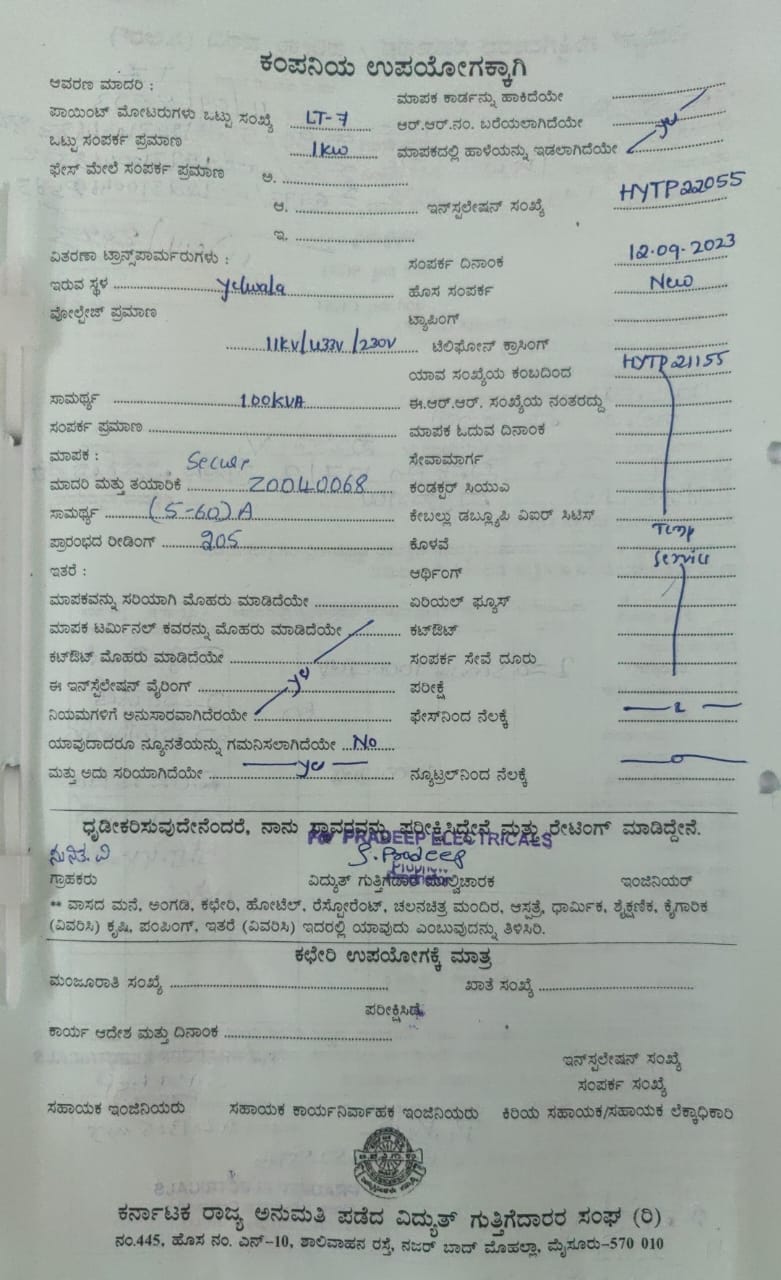 ಕಂಪನಿಯ ಉಪಯೋಗಕ್ಕಾಗಿ
ಆವರಣ ಮಾದರಿ :
ಮಾಪಕ ಕಾರ್ಡನ್ನು ಹಾಕಿದೆಯೇ
ಪಾಯಿಂಟ್ ಮೋಟರುಗಳು ಒಟ್ಟು ಸಂಖ್ಯೆ LT-7 ಆರ್.ಆರ್.ನಂ. ಬರೆಯಲಾಗಿದೆಯೇ
ಒಟ್ಟು ಸಂಪರ್ಕ ಪ್ರಮಾಣ 1kw ಮಾಪಕದಲ್ಲಿ ಹಾಳೆಯನ್ನು ಇಡಲಾಗಿದೆಯೇ yes
ಫೇಸ್ ಮೇಲೆ ಸಂಪರ್ಕ ಪ್ರಮಾಣ ಅ.
ಆ. ಇನ್‌ಸ್ಪಲೇಷನ್ ಸಂಖ್ಯೆ HYTP22055
ಇ.
ವಿತರಣಾ ಟ್ರಾನ್ಸ್‌ಪಾರ್ಮರುಗಳು : ಸಂಪರ್ಕ ದಿನಾಂಕ 12-09-2023
ಇರುವ ಸ್ಥಳ yelwala ಹೊಸ ಸಂಪರ್ಕ New
ವೋಲ್ಟೇಜ್ ಪ್ರಮಾಣ ಟ್ಯಾಪಿಂಗ್
11KV/433V/230V ಟೆಲಿಫೋನ್ ಕ್ರಾಸಿಂಗ್
ಯಾವ ಸಂಖ್ಯೆಯ ಕಂಬದಿಂದ HYTP21155
ಸಾಮರ್ಥ್ಯ 100KVA ಈ.ಆರ್.ಆರ್. ಸಂಖ್ಯೆಯ ನಂತರದ್ದು
ಸಂಪರ್ಕ ಪ್ರಮಾಣ ಮಾಪಕ ಓದುವ ದಿನಾಂಕ
ಮಾಪಕ : Secure ಸೇವಾಮಾರ್ಗ
ಮಾದರಿ ಮತ್ತು ತಯಾರಿಕೆ Z0040068 ಕಂಡಕ್ಟರ್ ಸಿಯುಎ
ಸಾಮರ್ಥ್ಯ (5-60)A ಕೇಬಲ್ಲು ಡಬ್ಲ್ಯೂಪಿ ವಿಐರ್ ಸಿಟಿಸ್
ಪ್ರಾರಂಭದ ರೀಡಿಂಗ್ 205 ಕೊಳವೆ Temp
ಇತರೆ : ಆರ್ಥಿಂಗ್ Service
ಮಾಪಕವನ್ನು ಸರಿಯಾಗಿ ಮೊಹರು ಮಾಡಿದೆಯೇ ಏರಿಯಲ್ ಫ್ಯೂಸ್
ಮಾಪಕ ಟರ್ಮಿನಲ್ ಕವರನ್ನು ಮೊಹರು ಮಾಡಿದೆಯೇ ಕಟ್‌ಔಟ್
ಕಟ್‌ಔಟ್ ಮೊಹರು ಮಾಡಿದೆಯೇ ಸಂಪರ್ಕ ಸೇವೆ ದೂರು
ಈ ಇನ್‌ಸ್ಪೆಲೇಷನ್ ವೈರಿಂಗ್ yes ಪರೀಕ್ಷೆ
ನಿಯಮಗಳಿಗೆ ಅನುಸಾರವಾಗಿದೆರಯೇ ಫೇಸ್‌ನಿಂದ ನೆಲಕ್ಕೆ
ಯಾವುದಾದರೂ ನ್ಯೂನತೆಯನ್ನು ಗಮನಿಸಲಾಗಿದೆಯೇ No
ಮತ್ತು ಅದು ಸರಿಯಾಗಿದೆಯೇ yes ನ್ಯೂಟ್ರಲ್‌ನಿಂದ ನೆಲಕ್ಕೆ
ಧೃಡೀಕರಿಸುವುದೇನೆಂದರೆ, ನಾನು ಸ್ಥಾವರವನ್ನು ಪರೀಕ್ಷಿಸಿದ್ದೇನೆ ಮತ್ತು ರೇಟಿಂಗ್ ಮಾಡಿದ್ದೇನೆ.
For PRADEEP ELECTRICALS
ಸುನಿತ. ವಿ S. Pradeep
ಗ್ರಾಹಕರು ವಿದ್ಯುತ್ ಗುತ್ತಿಗೆದಾರ ಮೇಲ್ವಿಚಾರಕ ಇಂಜಿನಿಯರ್
** ವಾಸದ ಮನೆ, ಅಂಗಡಿ, ಕಛೇರಿ, ಹೋಟೆಲ್, ರೆಸ್ಟೋರೆಂಟ್, ಚಲನಚಿತ್ರ ಮಂದಿರ, ಆಸ್ಪತ್ರೆ, ಧಾರ್ಮಿಕ, ಶೈಕ್ಷಣಿಕ, ಕೈಗಾರಿಕ
(ವಿವರಿಸಿ) ಕೃಷಿ, ಪಂಪಿಂಗ್, ಇತರೆ (ವಿವರಿಸಿ) ಇದರಲ್ಲಿ ಯಾವುದು ಎಂಬುವುದನ್ನು ತಿಳಿಸಿರಿ.
ಕಛೇರಿ ಉಪಯೋಗಕ್ಕೆ ಮಾತ್ರ
ಮಂಜೂರಾತಿ ಸಂಖ್ಯೆ ಖಾತೆ ಸಂಖ್ಯೆ
ಪರೀಕ್ಷಿಸಿದೆ
ಕಾರ್ಯ ಆದೇಶ ಮತ್ತು ದಿನಾಂಕ
ಇನ್‌ಸ್ಪಲೇಷನ್ ಸಂಖ್ಯೆ
ಸಂಪರ್ಕ ಸಂಖ್ಯೆ
ಸಹಾಯಕ ಇಂಜಿನಿಯರು ಸಹಾಯಕ ಕಾರ್ಯನಿರ್ವಾಹಕ ಇಂಜಿನಿಯರು ಕಿರಿಯ ಸಹಾಯಕ/ಸಹಾಯಕ ಲೆಕ್ಕಾಧಿಕಾರಿ
ಕರ್ನಾಟಕ ರಾಜ್ಯ ಅನುಮತಿ ಪಡೆದ ವಿದ್ಯುತ್ ಗುತ್ತಿಗೆದಾರರ ಸಂಘ (ರಿ)
ನಂ.445, ಹೊಸ ನಂ. ಎನ್-10, ಶಾಲಿವಾಹನ ರಸ್ತೆ, ನಜರ್ ಬಾದ್ ಮೊಹಲ್ಲಾ, ಮೈಸೂರು-570 010